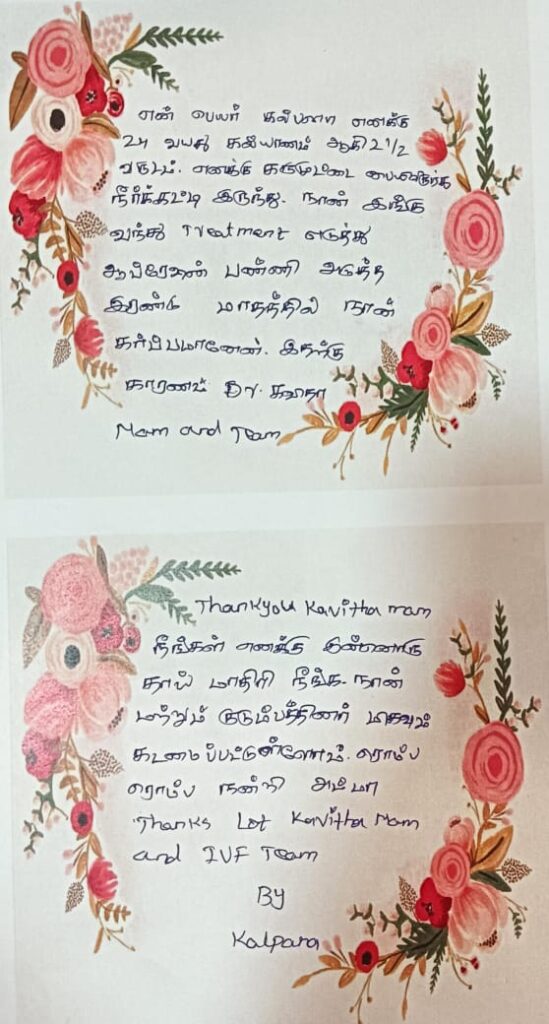 என் பெயர் கல்பனா எனக்கு
24 வயது கல்யாணம் ஆகி 2 1/2
வருடம். எனக்கு கருமுட்டை பையிலிருந்து
நீர்க்கட்டி இருந்து. நான் இங்கு
வந்து Treatment எடுத்து
ஆபரேஜன் பண்ணி அடுத்த
இரண்டு மாதத்தில் நான்
கர்ப்பமானேன். இதற்கு
காரணம் Dr. கவிதா
Mam and Team
Thankyou Kavitha mam
நீங்கள் எனக்கு இன்னொரு
தாய் மாதிரி நீங்க. நான்
மற்றும் குடும்பத்தினர் மிகவும்
கடமைப்பட்டுள்ளோம். ரொம்ப
ரொம்ப நன்றி அம்மா
Thanks Lot Kavitha Mam
and IVF Team
By
Kalpana